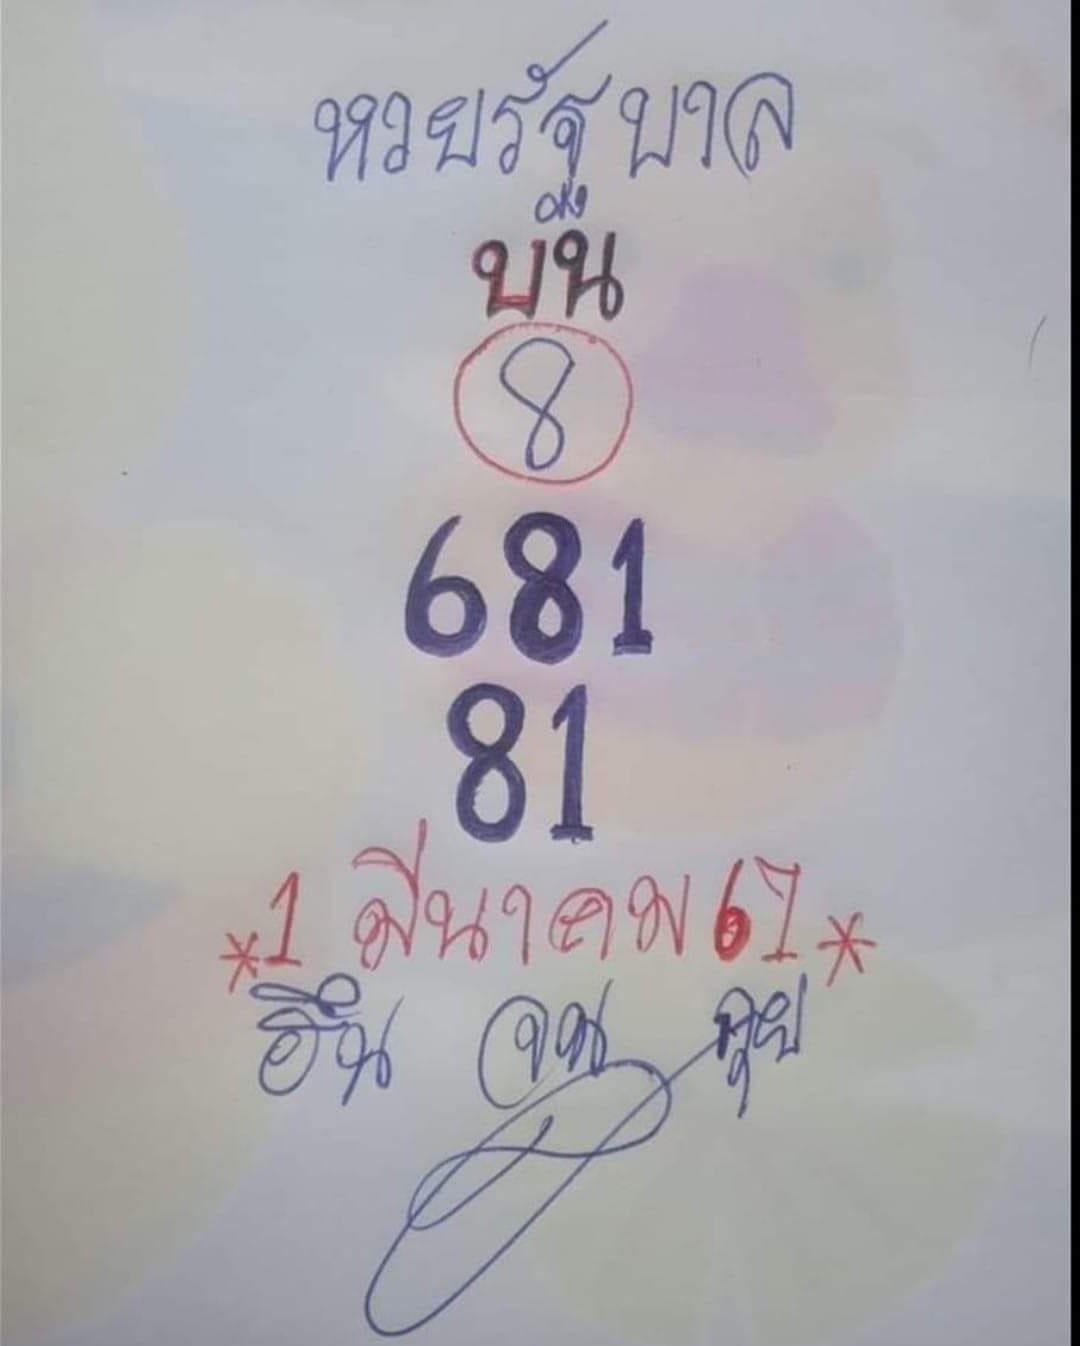 หวยรัฐบาล
บน
8
681
81
*1 มีนาคม 67*